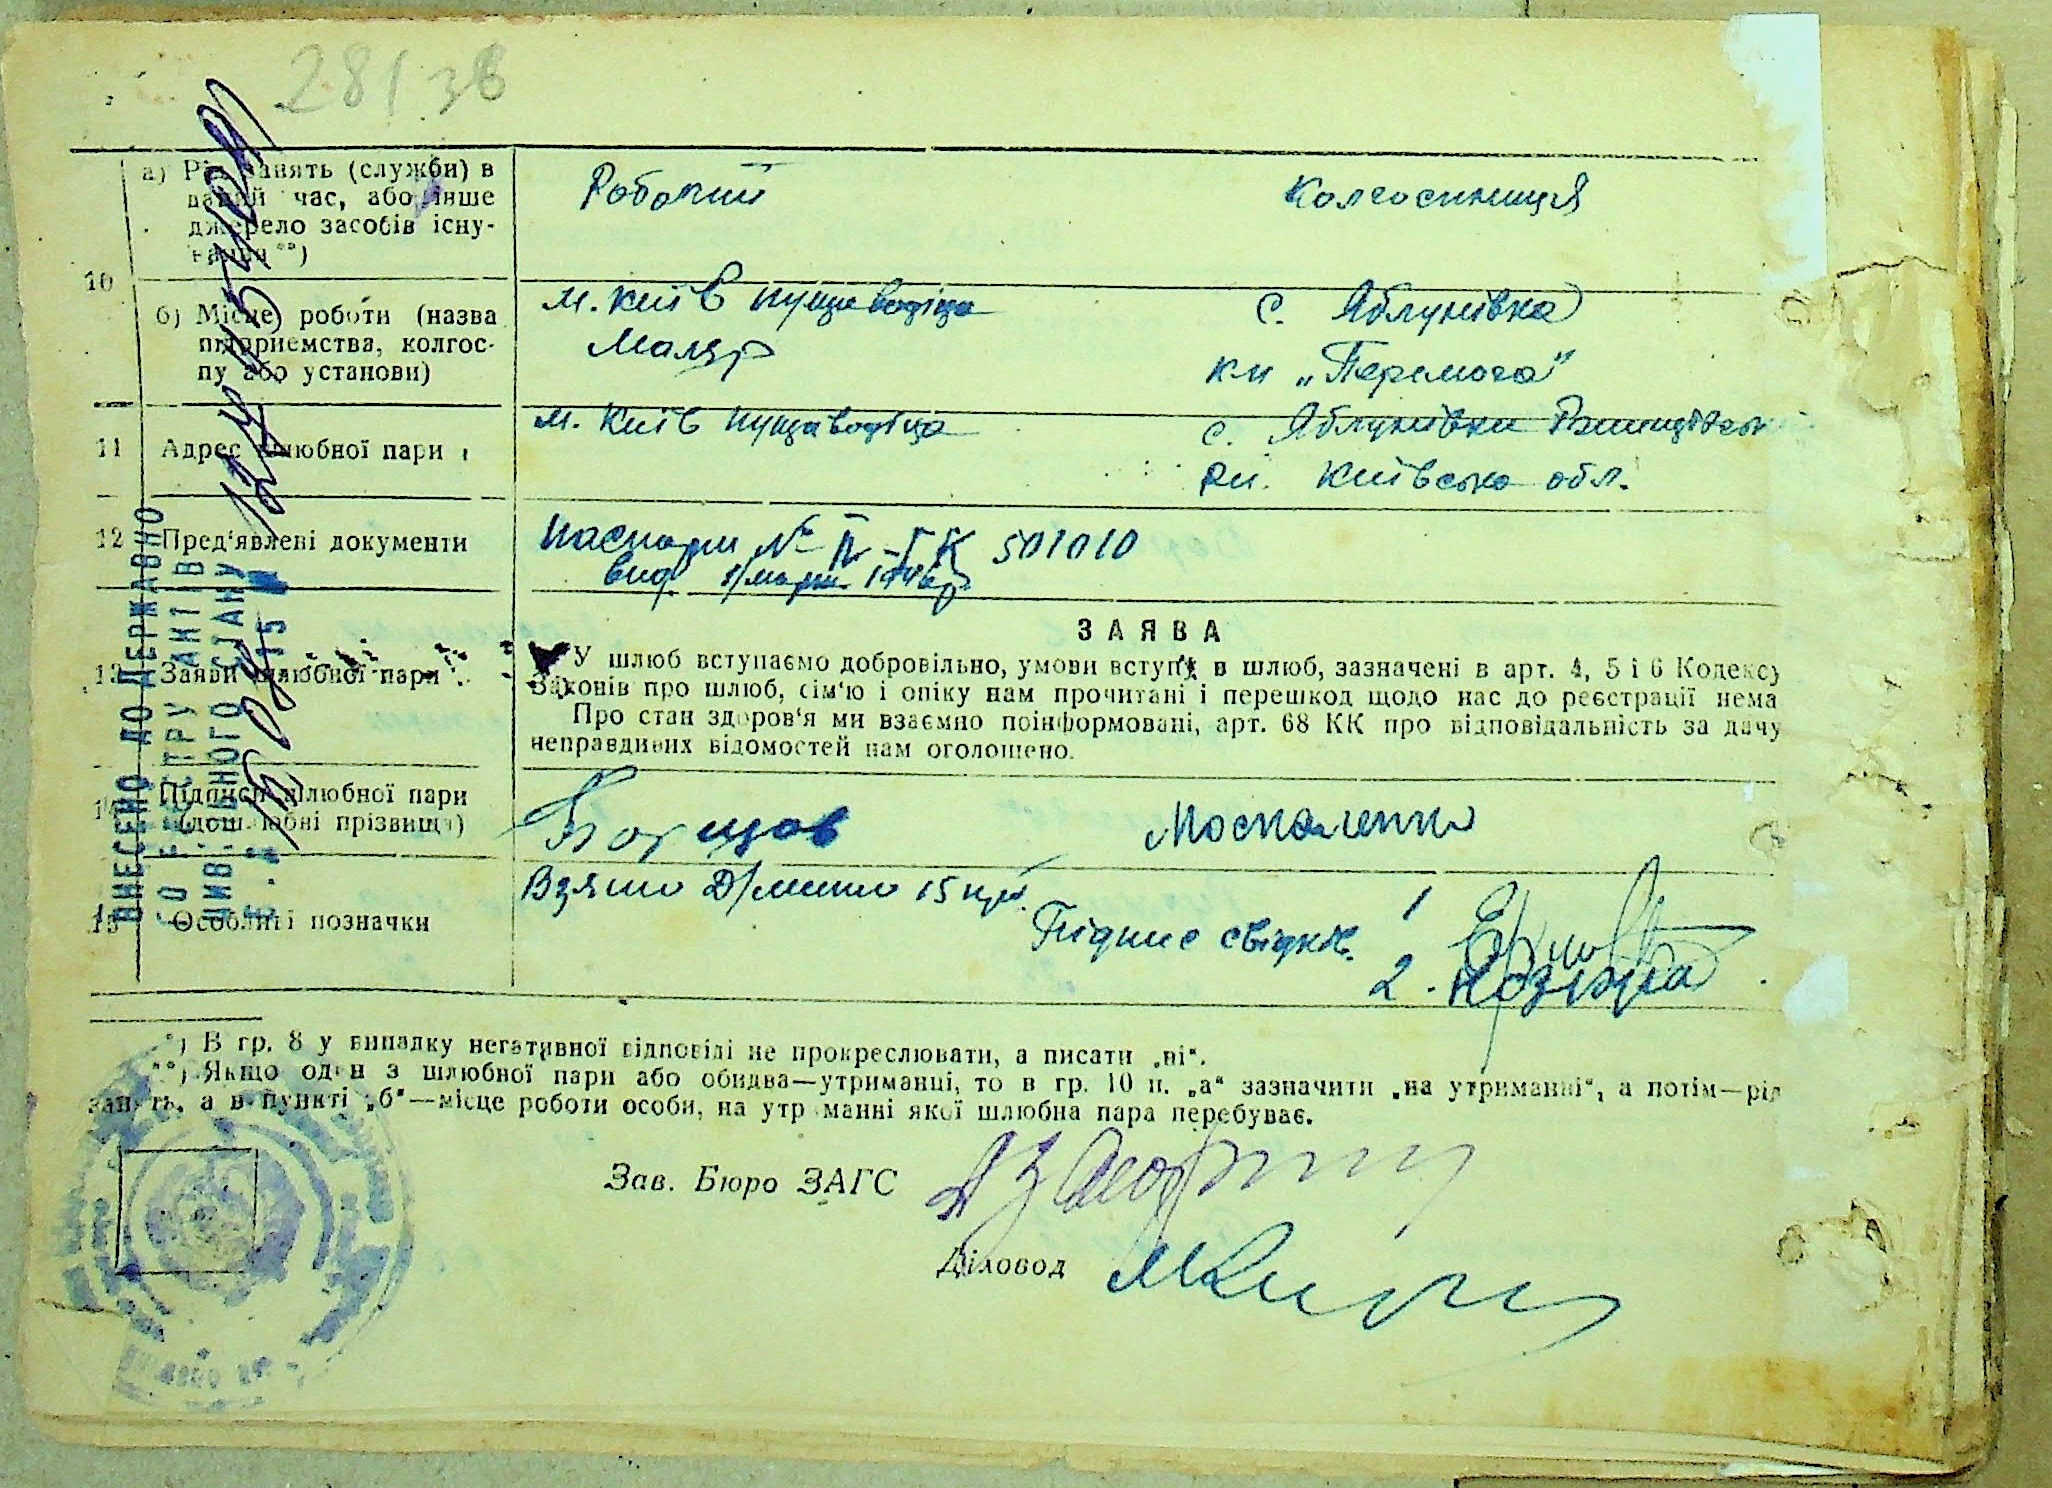 28/38
а) Рід занять (служби) в Робочий Колгоспниця
даний час, або інше
джерело засобів існу-
вання **)
10
б) Місце роботи (назва м. Київ Пуща водіца с. Яблунівка
підприємства, колгос- Маляр кп „Перемога"
пу або установи)
11 Адрес шлюбної пари м. Київ Пущаводіца с. Яблунівка
Рн. Київська обл.
12 Пред'явлені документи паспорт № IV-ГК 501010
вид.
ЗАЯВА
13 Заяви шлюбної пари У шлюб вступаємо добровільно, умови вступу в шлюб, зазначені в арт. 4, 5 і 6 Кодексу
Законів про шлюб, сім'ю і опіку нам прочитані і перешкод щодо нас до реєстрації нема
Про стан здоров'я ми взаємно поінформовані, арт. 68 КК про відповідальність за дачу
неправдивих відомостей нам оголошено.
14 Підписи шлюбної пари Борщов Москаленко
(дошлюбні прізвища)
15 Особливі позначки Взято 15 крб.
Підпис свідків. 1
2.
*) В гр. 8 у випадку негативної відповіді не прокреслювати, а писати „ні".
**) Якщо один з шлюбної пари або обидва—утриманці, то в гр. 10 п. „а" зазначити „на утриманні", а потім—рід
занять, а в пункті „б"—місце роботи особи, на утриманні якої шлюбна пара перебуває.
Зав. Бюро ЗАГС
Діловод
ВНЕСЕНО ДО ДЕРЖАВНО
ГО РЕЄСТРУ АКТІВ
ЦИВІЛЬНОГО СТАНУ